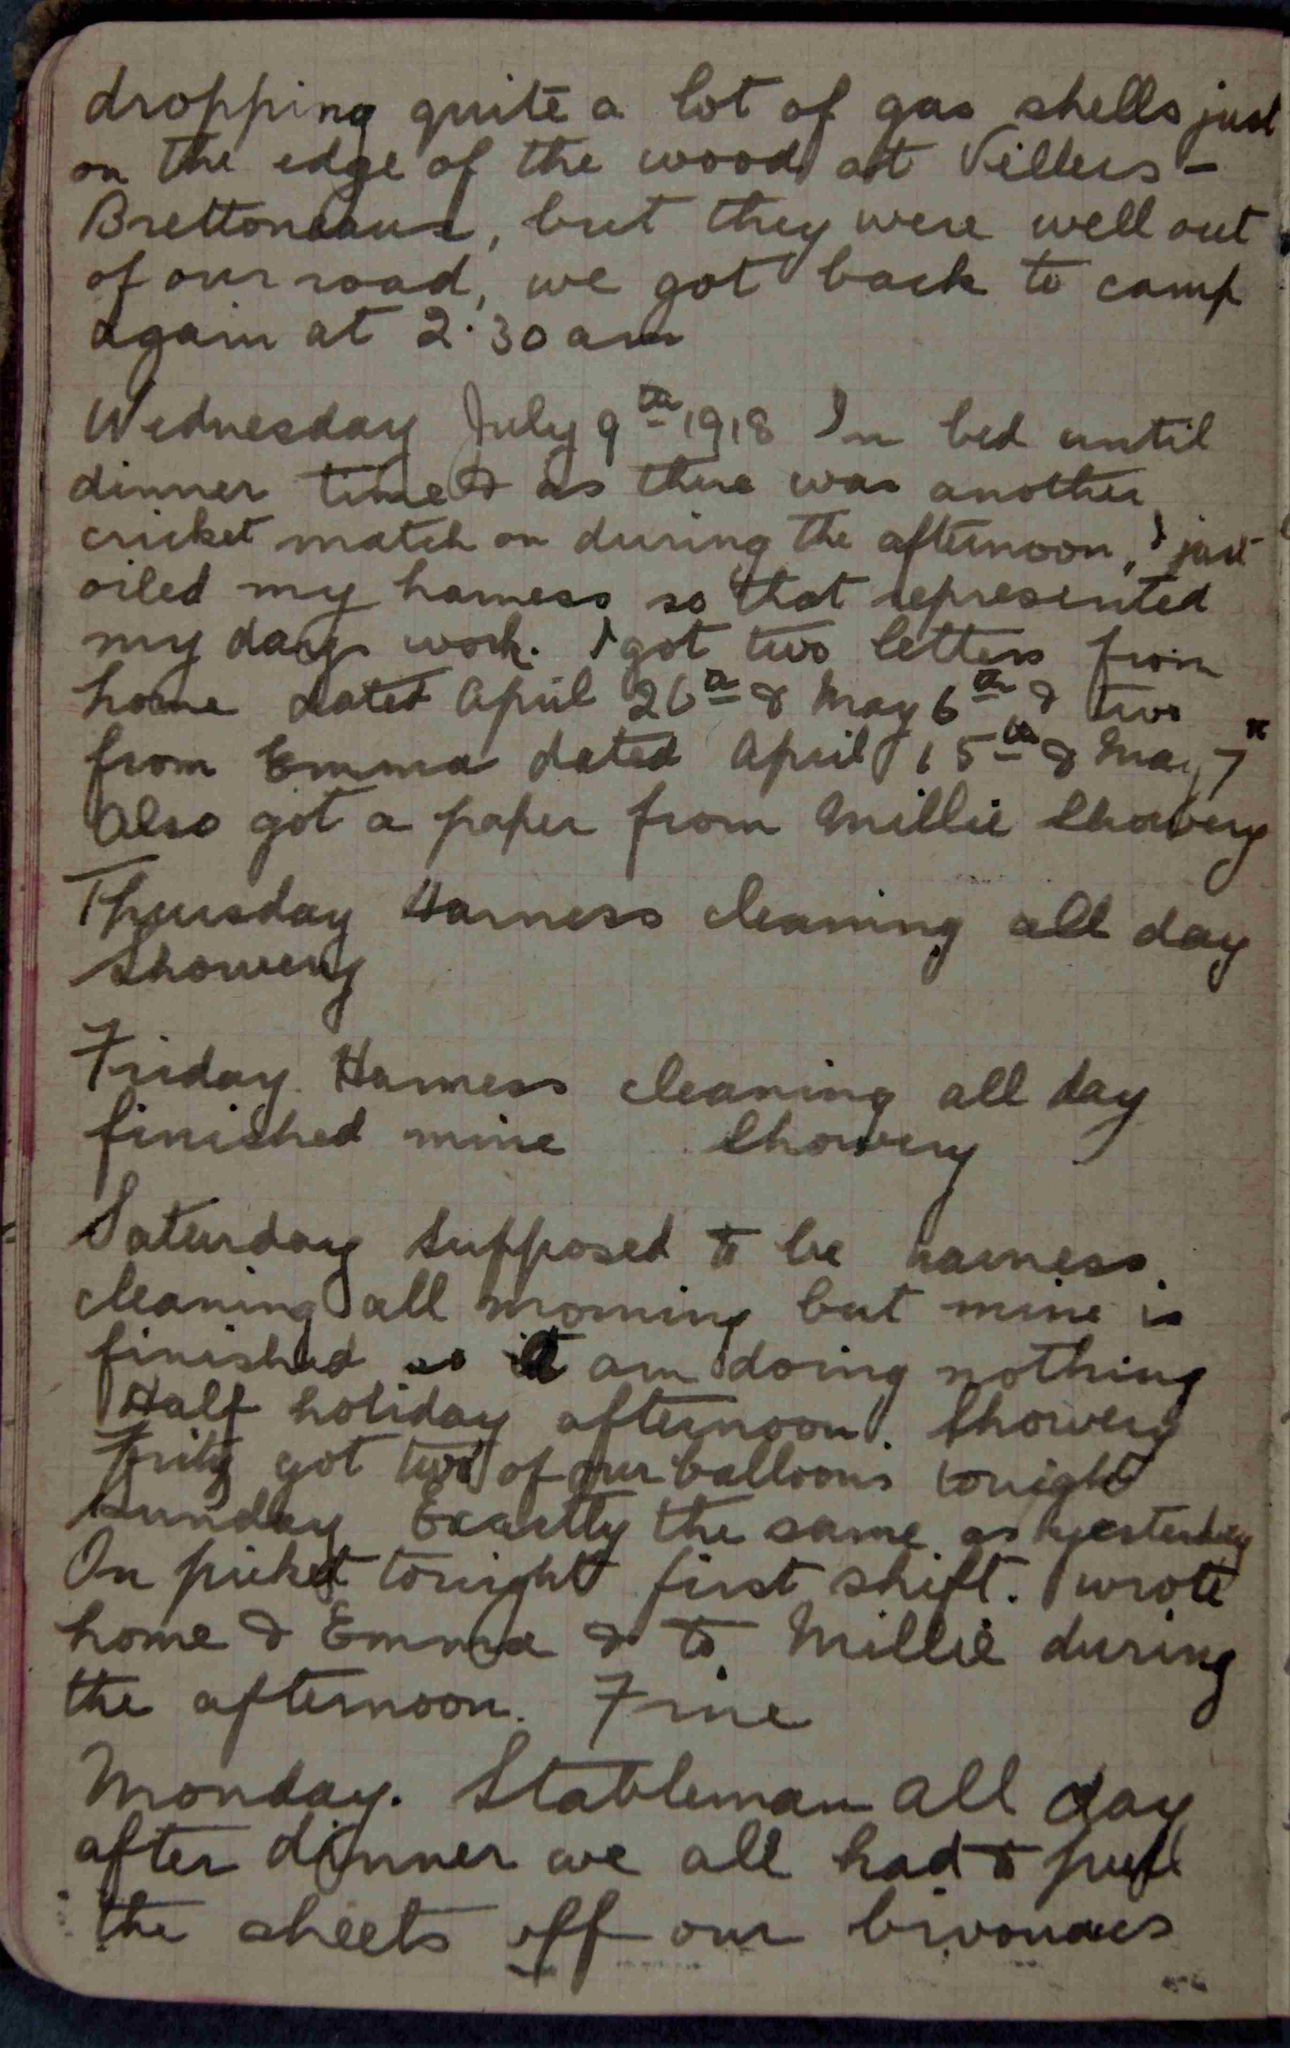 dropping quite a lot of gas shells just
on the edge of the wood at Villers -
Brettoneaux, but they were well out
of our road, we got back to camp
again at 2.30 am
Wednesday July 9th 1918 In bed until
dinner time & as there was another
cricket match on during the afternoon, I just
oiled my harness so that represented
my days work. I got two letters from
home dated April 26th & May 6th & two
from Emma dated April 15th & May 7th
Also got a paper from Millie Showery
Thursday Harness cleaning all day
Showery
Friday. Harness cleaning all day
finished mine Showery
Saturday Supposed to be harness
cleaning all morning but mine is
finished so am doing nothing
Half holiday afternoon. Showery
Fritz got two of our balloons tonight
Sunday Exactly the same as yesterday
On picket tonight first shift. wrote
home & Emma & to Millie during
the afternoon. Fine
Monday. Stableman all day
after dinner we all had to pull
the sheets off our bivouacs